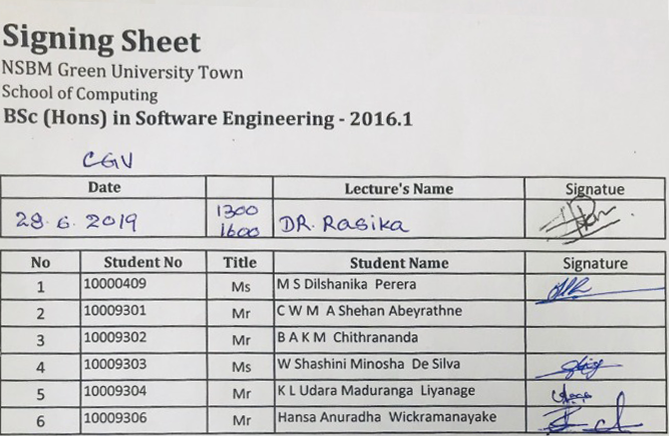 Signing Sheet
NSBM Green University Town
School of Computing
BSc (Hons) in Software Engineering - 2016.1
CGV
Date Lecture's Name Signatue
28. 6. 2019 1300 1600 DR. Rasika
No Student No Title Student Name Signature
1 10000409 Ms M S Dilshanika Perera
2 10009301 Mr C W M A Shehan Abeyrathne
3 10009302 Mr B A K M Chithrananda
4 10009303 Ms W Shashini Minosha De Silva
5 10009304 Mr K L Udara Maduranga Liyanage
6 10009306 Mr Hansa Anuradha Wickramanayake